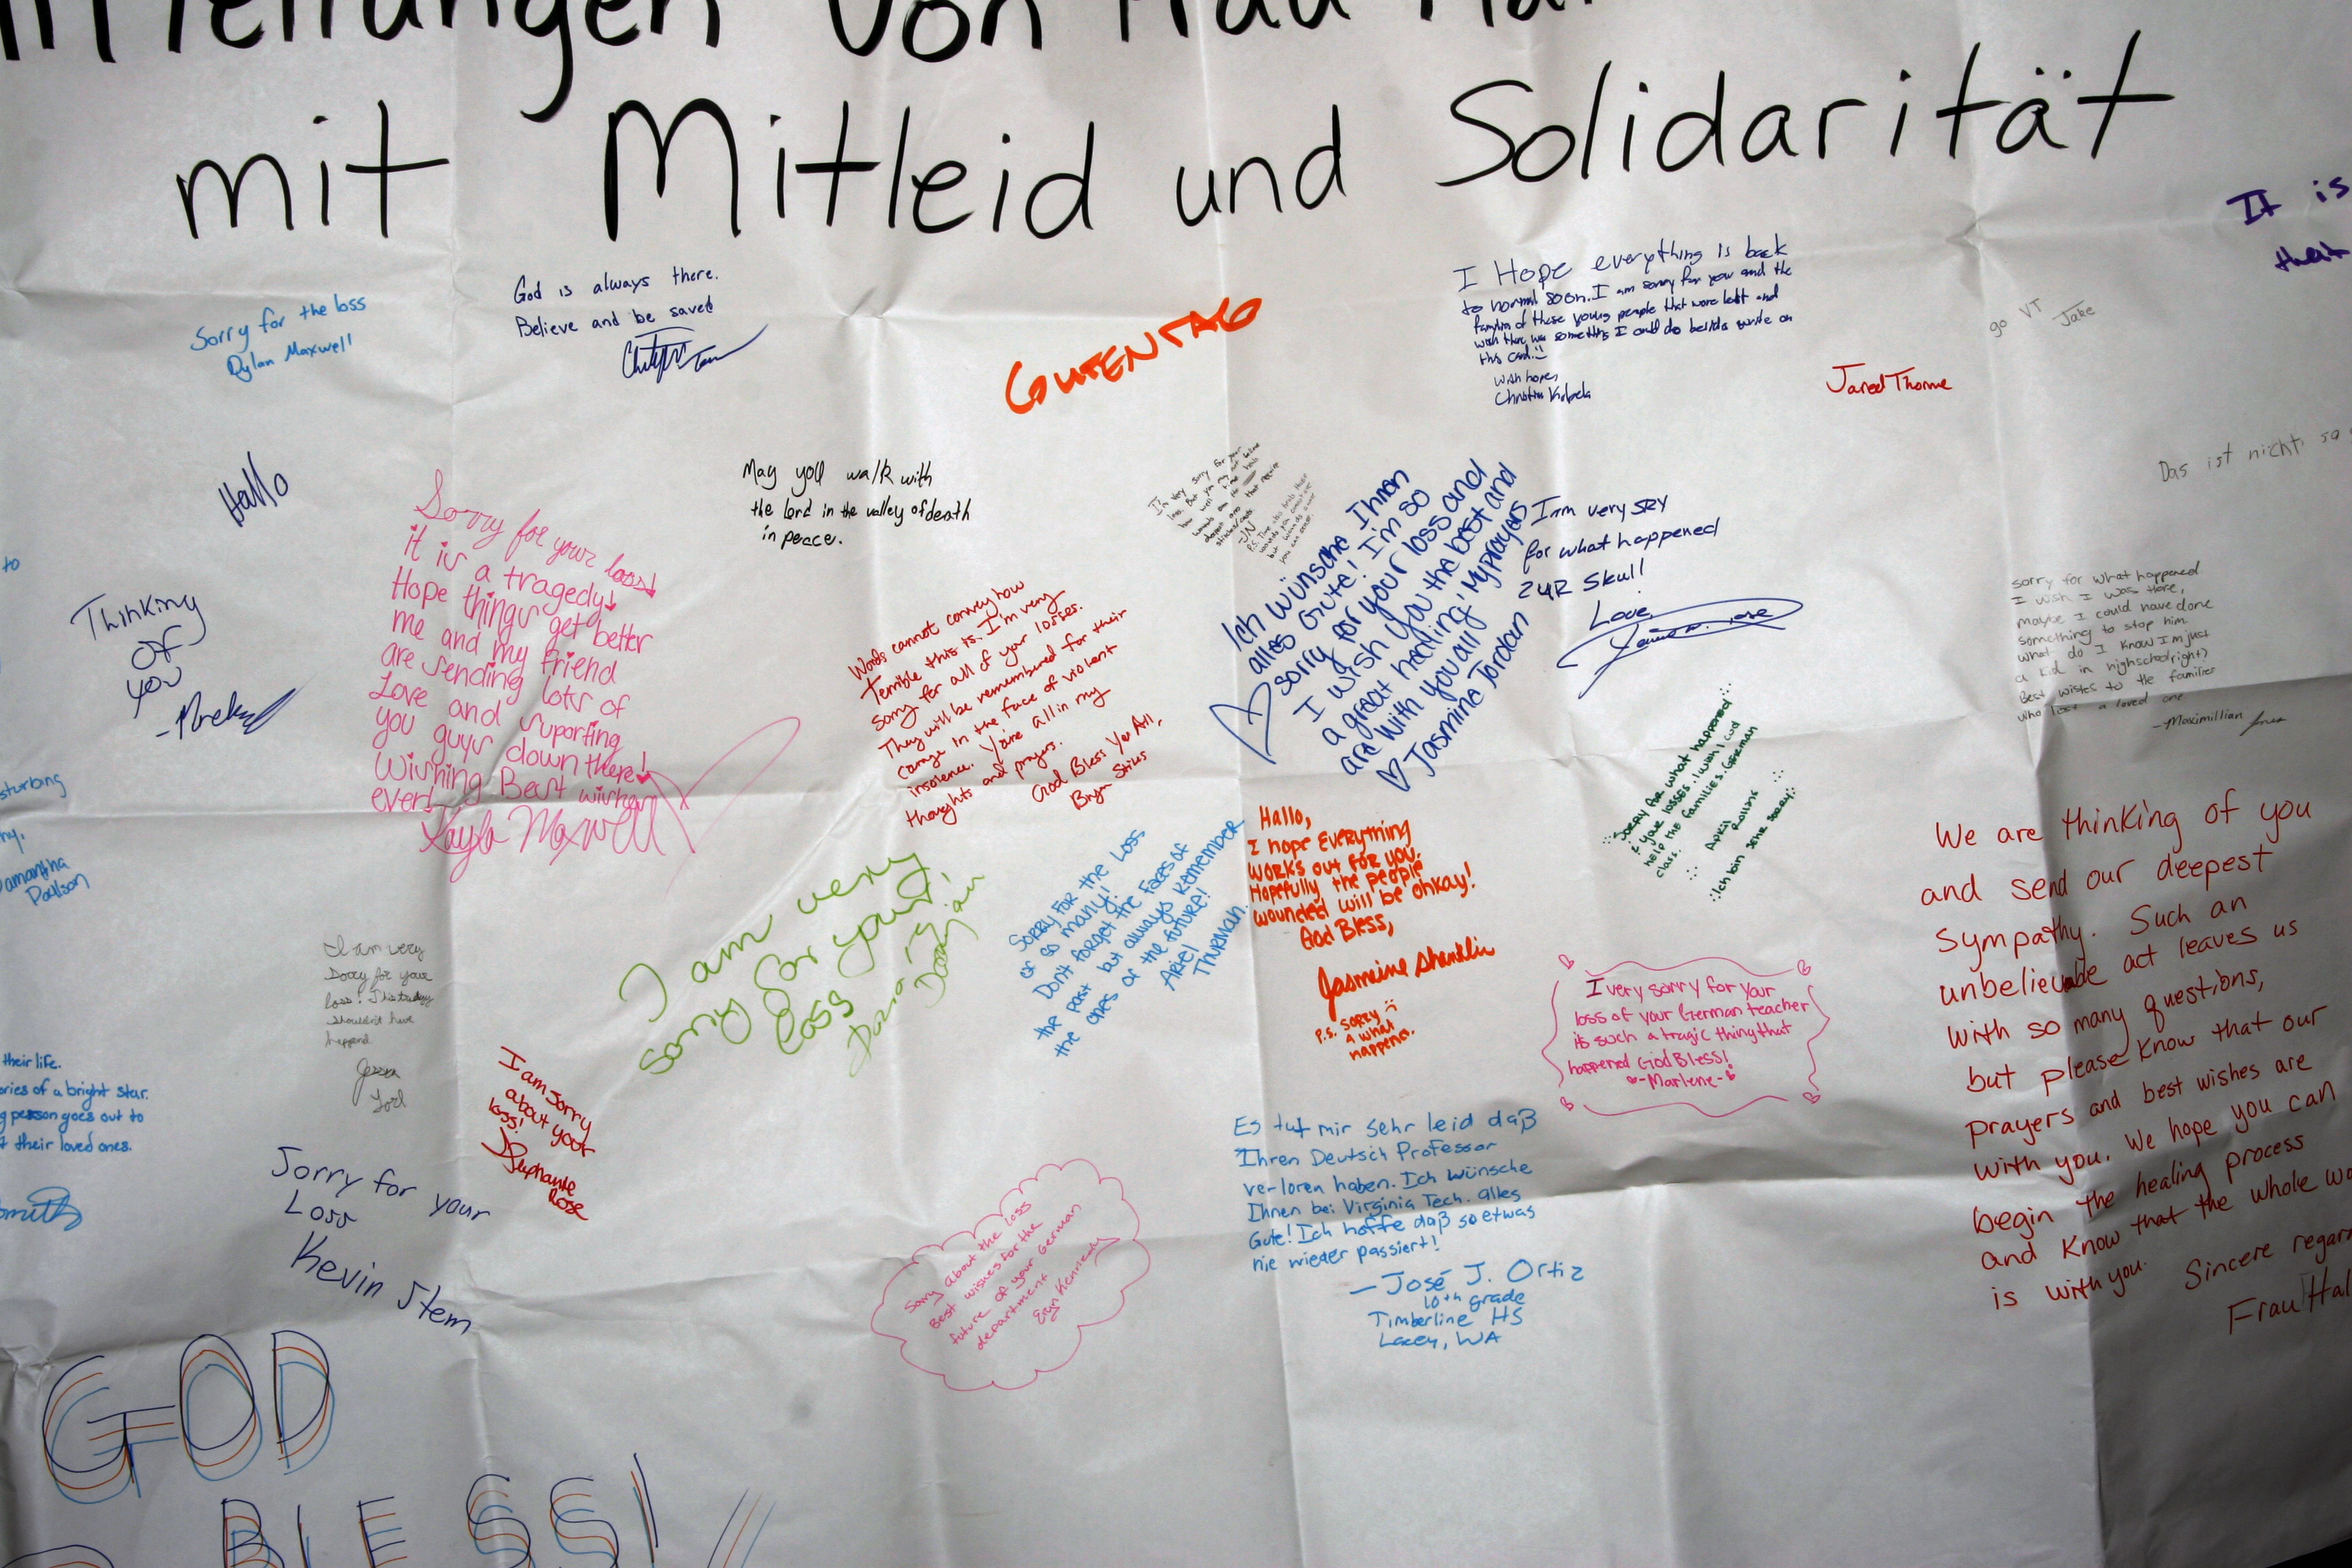 von
mit Mitleid und Solidarität
It is
that
God is always there.
Believe and be saved
Sorry for the loss
Dylan Maxwell
GUTEN TAG
I Hope everything is back
to normal soon. I am sorry for you and the
families of those young people that were lost and
wish there was something I could do besides write on
this card.
With hope,
go VT
Jake
Jared Thorne
Das ist nicht so
Hallo
May yoll walk with
the lord in the valley of death
in peace.
Sorry for your loss!
it is a tragedy!
Hope things get better
me and my friend
are sending lots of
Love and suporting
you guys down there!
Wishing Best wishes
ever!
Kayla Maxwell
to
Thinking
OF
you
Words cannot convey how
terrible this is. I'm very
sorry for all of your losses.
They will be remembered for their
in the face of violent
insolence. You're all in my
thoughts and prayers.
God Bless Ye All,
Ich wünsche Ihnen
alles Gute! I'm so
sorry for your loss and
I wish you the best and
a great healing! My prayers
are with you all
Jasmine Jordan
I am very SRY
for what happened
2 UR Skul!
Love
sorry for what happened
I wish I was there,
maybe I could have done
something to stop him.
what do I know I'm just
a kid in highschool right?
Best wistes to the families
who lost a loved one
-Maximillian
sorry for what happened
& your losses. I wish I could
help the families. German
class.
April
Rollins
Ich bin sehr sorry
sturbing
hy.
amantha
Hallo,
I hope Everything
works out for you.
Hopefully the people
wounded will be ohkay!
God Bless,
Jasmeine Shanklin
P.S. sorry
4 what
happens.
Sorry For the Loss
of so many!
Don't forget the faces of
the past but always Remember
the ones of the future!
Ariel
Thurman.
I am very
sorry for your
loss!
I am very
Sorry for your
loss! This tradgey
shouldn't have
happend
I very sorry for your
loss of your German teacher
its such a tragic thing that
happened God Bless!
-Marlene-
We are thinking of you
and send our deepest
sympathy. Such an
unbelievable act leaves us
with so many questions,
but please know that our
prayers and best wishes are
with you. We hope you can
begin the healing process
and know that the whole wo
is with you.
Sincere regar
Frau Hal
their life.
ories of a bright star.
g person goes out to
their loved ones.
I am sorry
about your
loss!
Stephanie
Rose
Sorry for your
Loss
Kevin Stem
Es tut mir sehr leid daß
Ihren Deutsch Professor
verloren haben. Ich wünsche
Ihnen bei Virginia Tech. alles
Gute! Ich hoffe daß so etwas
nie wieder passiert!
— José J. Ortiz
10th grade
Timberline HS
Lacey, WA
Sorry about the loss
Best wishes for the
future of your German
department
Eryn Kennedy
GOD
BLESS!